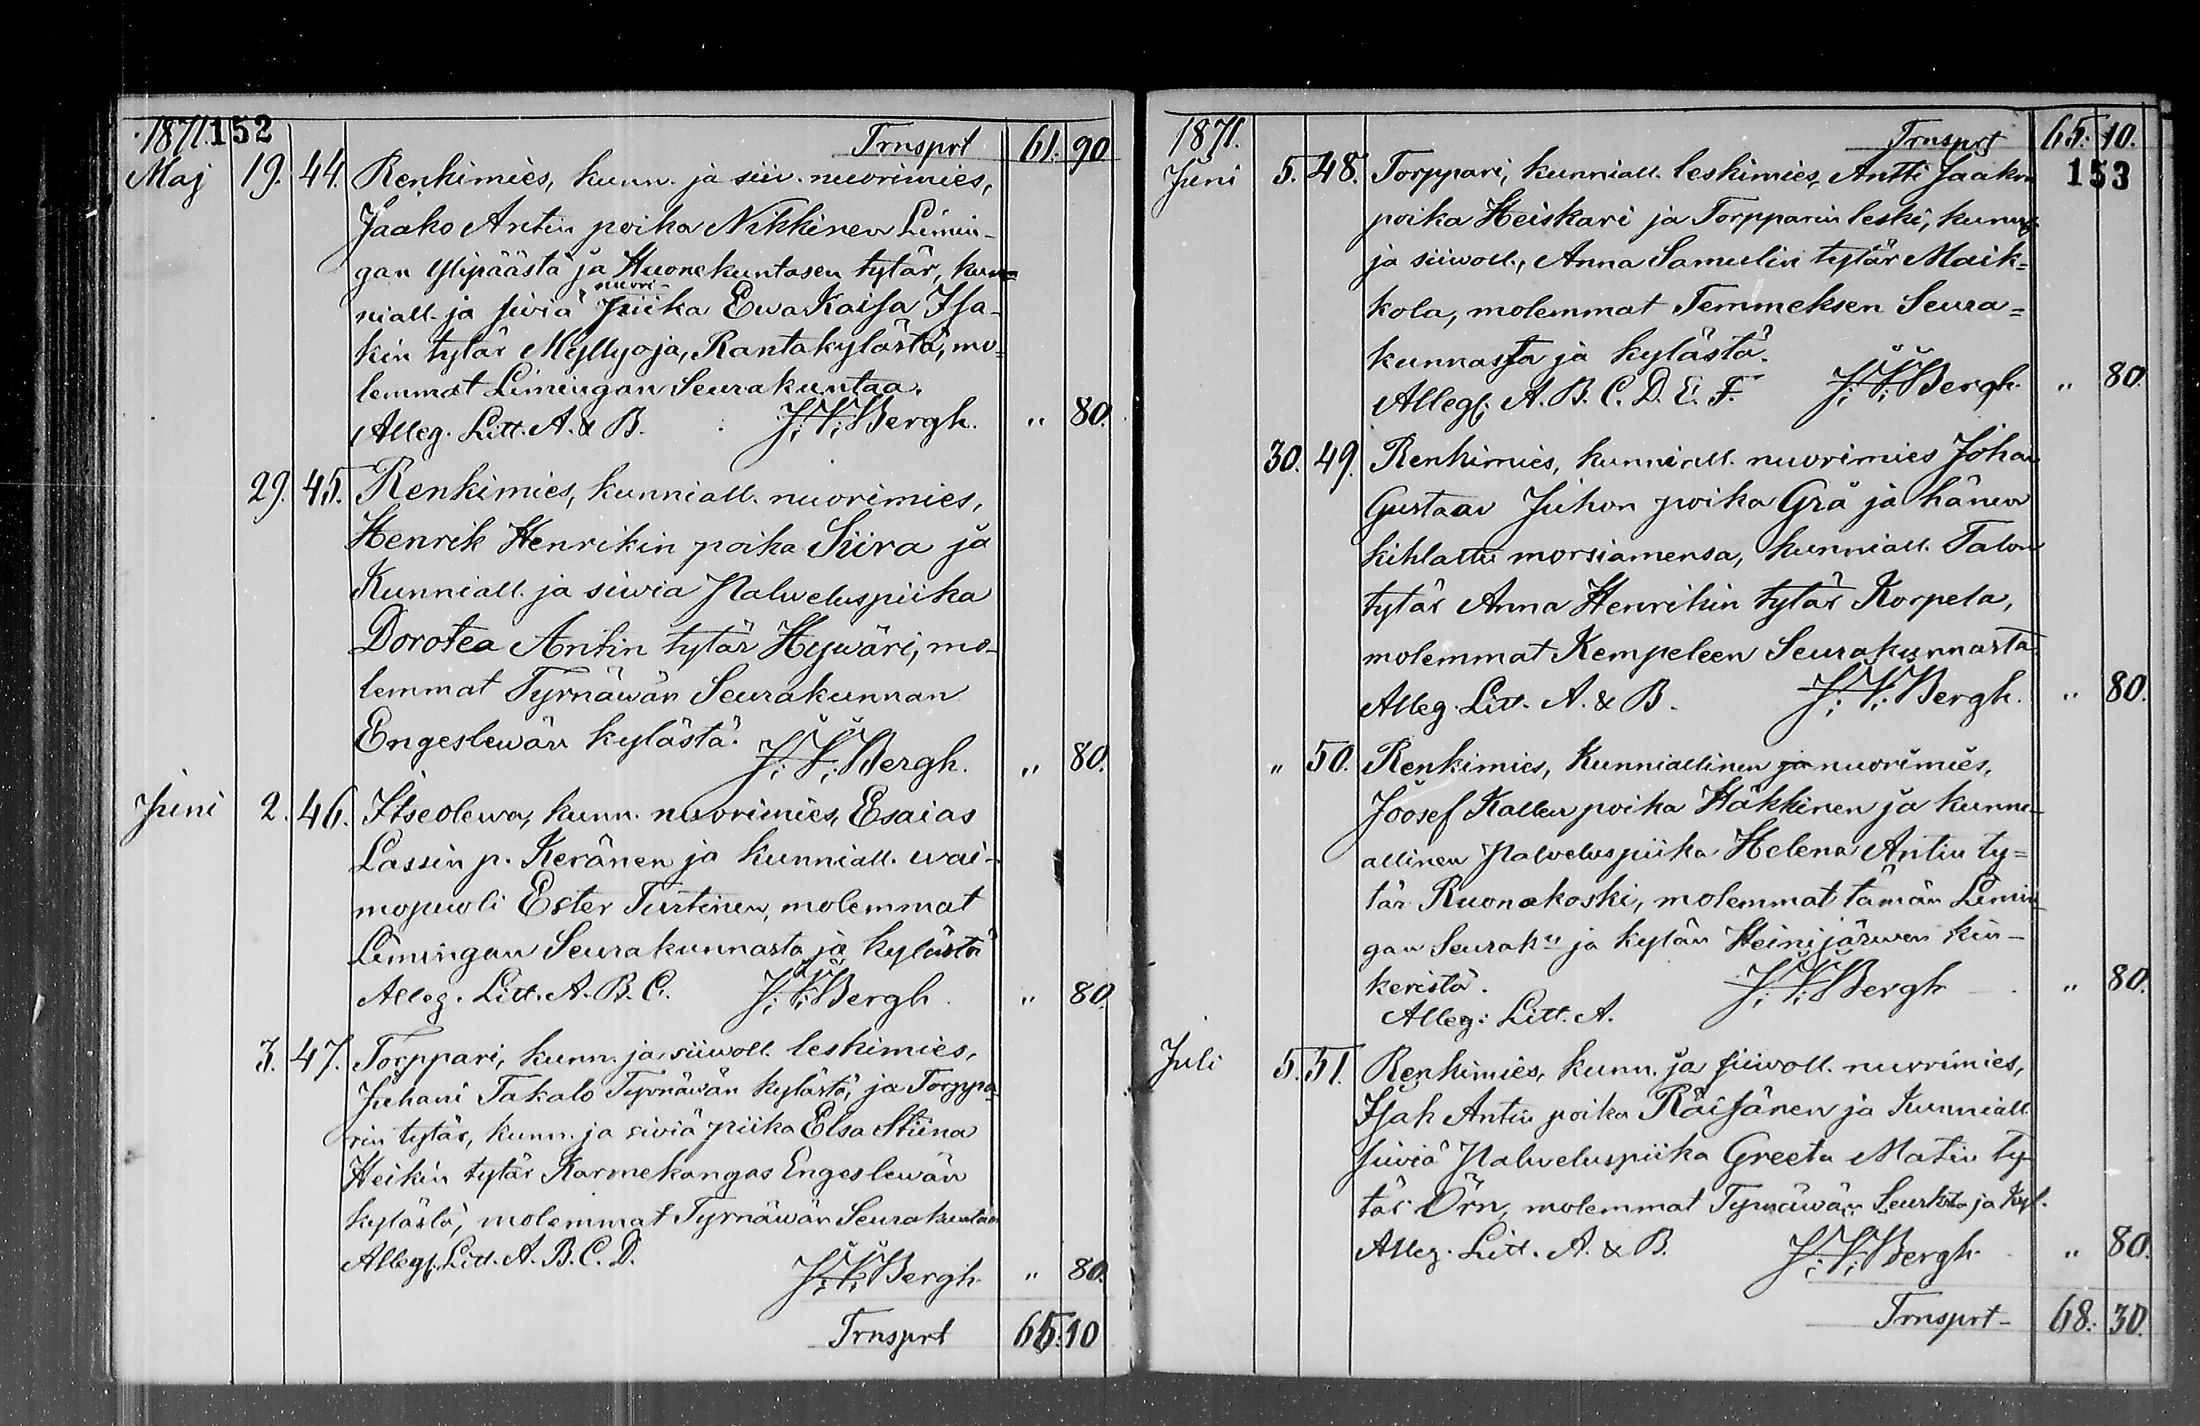 1871. 152
Trnsprt 61. 90
Maj 19. 44. Renkimies, kunn. ja siiv. nuorimies,
Jaako Antin poika Nikkinen Limin-
gan Ylipäästä ja Huonekuntasen tytär, kun-
niall. ja siviä nuori-piika Ewa Kaisa Isa-
kin tytär Myllyoja, Rantakylästä, mo-
lemmat Limingan Seurakuntaa.
Alleg. Litt. A. & B. J. V. Bergh. " 80.
29. 45. Renkimies, kunniall. nuorimies,
Henrik Henrikin poika Siira ja
Kunniall. ja siwia Palweluspiika
Dorotea Antin tytär Hywäri, mo-
lemmat Tyrnäwän Seurakunnan
Engeslewän kylästä.
J. V. Bergh. " 80.
Juni 2. 46. Itseolewa, kunn. nuorimies, Esaias
Lassin p. Keränen ja kunniall. wai-
mopuoli Ester Turtinen, molemmat
Limingan Seurakunnasta ja kylästä
Alleg. Litt. A. B. C. J. V. Bergh. " 80.
3. 47. Torppari, kunn. ja siiwoll. leskimies,
Juhani Takalo Tyrnäwän kylästä, ja Torppa-
rin tytär, kunn. ja siviä piika Elsa Stiina
Heikin tytär Karmekangas Engeslewän
kylästä, molemmat Tyrnäwän Seurakuntaa
Alleg. Litt. A. B. C. D.
J. V. Bergh. " 80.
Trnsprt 65. 10
1871. Trnsprt 65. 10.
153
Juni 5. 48. Torppari, kunniall. leskimies, Antti Jaakon
poika Heiskari ja Torpparin leski, kunn.
ja siiwoll., Anna Samulin tytär Maik=
kola, molemmat Temmeksen Seura=
kunnasta ja kylästä.
Alleg. A. B. C. D. E. F. J. V. Bergh. " 80.
30. 49. Renkimies, kunniall. nuorimies Johan
Gustaav Juhon poika Grå ja hänen
kihlattu morsiamensa, kunniall. Talon
tytär Anna Henrikin tytär Korpela,
molemmat Kempeleen Seurakunnasta.
Alleg. Litt. A. & B. J. V. Bergh. " 80.
" 50. Renkimies, Kunniallinen ja nuorimies,
Joosef Kallen poika Häkkinen ja kunni-
allinen Palveluspiika Helena Antin ty=
tär Ruonakoski, molemmat tämän Limin
gan Seurak: ja kylän Heinijärwen kin-
keristä. J. V. Bergh " 80.
Alleg: Litt. A.
Juli 5. 51. Renkimies, kunn. ja siiwoll. nuorimies,
Isak Antin poika Räisänen ja Kunniall.
siiviä Palweluspiika Greeta Matin ty
tär Örn, molemmat Tyrnäwän Seurkta ja kyl.
Alleg. Litt. A. & B. J. V. Bergh. " 80.
Trnsprt 68. 30.